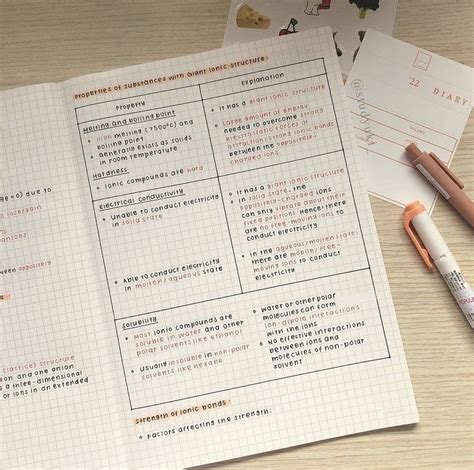 Properties of substances with Giant Ionic Structure
Property
Explanation
Melting and boiling point
• High melting (>500°C) and
boiling point
• Generally exists as solids
in room temperature
Hardness
• Ionic compounds are hard
• It has a giant ionic structure
• Large amount of energy
needed to overcome strong
electrostatic forces of
attraction/strong ionic bonds
between the oppositely-
charged ions
Electrical conductivity
• Unable to conduct electricity
in solid state
• Able to conduct electricity
in molten/aqueous state
• It has a giant ionic structure
in solid state, the
oppositely-charged ions
can only vibrate about their
fixed positions. Hence, there
are no free-moving ions to
conduct electricity
• In the aqueous/molten state,
there are mobile/free-
moving ions to conduct
electricity.
Solubility
• Most ionic compounds are
soluble in water and other
polar solvents like ethanol
• Usually insoluble in non-polar
solvents like hexane
• Water or other polar
molecules can form
ion-dipole interactions
with the ions
• No effective interactions
between ions and
molecules of non-polar
solvent
Strength of ionic bonds
• Factors affecting the strength:
=) due to
anions:
oppositely
(lattice) structure
ion and one anion
s a three-dimensional
or ions in an extended
'22 DIARY